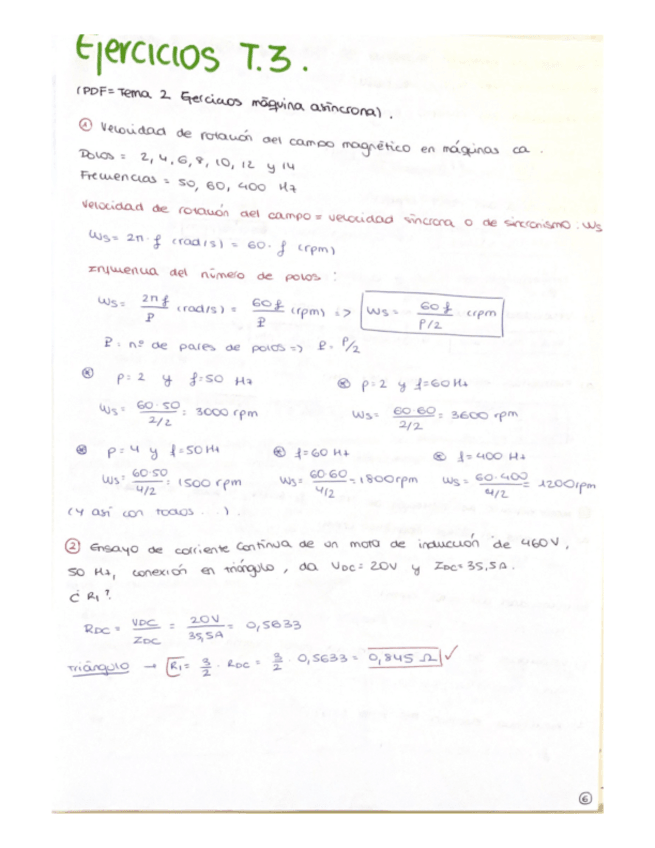 Ejercicios T.3.
(PDF = Tema 2 Ejercicios máquina asíncrona).
① Velocidad de rotación del campo magnético en máquinas ca.
Polos = 2, 4, 6, 8, 10, 12 y 14
Frecuencias = 50, 60, 400 Hz
Velocidad de rotación del campo = velocidad síncrona o de sincronismo: Ws
Ws = 2π·f (rad/s) = 60·f (rpm)
Influencia del número de polos:
Ws = 2πf/P (rad/s) = 60f/P (rpm) => Ws = 60f/P/2 rpm
P = nº de pares de polos => P = P/2
* p = 2 y f = 50 Hz
* p = 2 y f = 60 Hz
Ws = 60·50/2/2 = 3000 rpm
Ws = 60·60/2/2 = 3600 rpm
* p = 4 y f = 50 Hz
* f = 60 Hz
* f = 400 Hz
Ws = 60·50/4/2 = 1500 rpm
Ws = 60·60/4/2 = 1800 rpm
Ws = 60·400/4/2 = 1200 rpm
(y así con todos ...).
② Ensayo de corriente continua de un moto de inducción de 460V,
50 Hz, conexión en triángulo, da VDC = 20V y IDC = 35,5A.
¿R1?
RDC = VDC/IDC = 20V/35,5A = 0,5633
Triángulo → R1 = 3/2 · RDC = 3/2 · 0,5633 = 0,845 Ω ✓
6